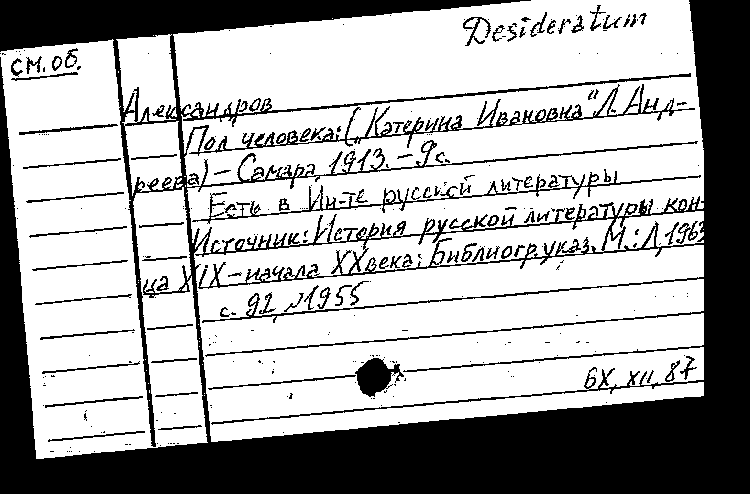 Desideratum
см. об.
Александров
Пол человека: („Катерина Ивановна" Л. Анд-
реева) – Самара, 1913. – 9 с.
Есть в Ин-те русской литературы
Источник: История русской литературы кон-
ца XIX – начала XX века: Библиогр. указ. М.: Л, 1963
с. 92, №1955
6X, XII, 87